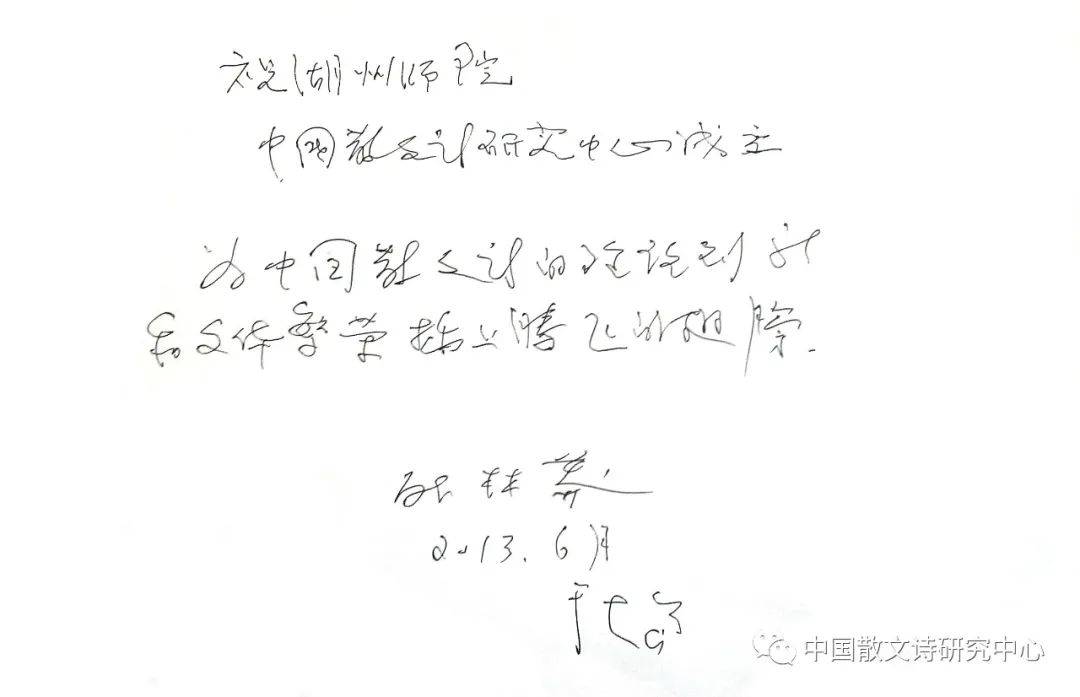 祝湖州师院
中国散文诗研究中心成立
为中国散文诗的理论创新
和文体繁荣插上腾飞的翅膀.
耿林莽
2013.6月
于青岛
中国散文诗研究中心